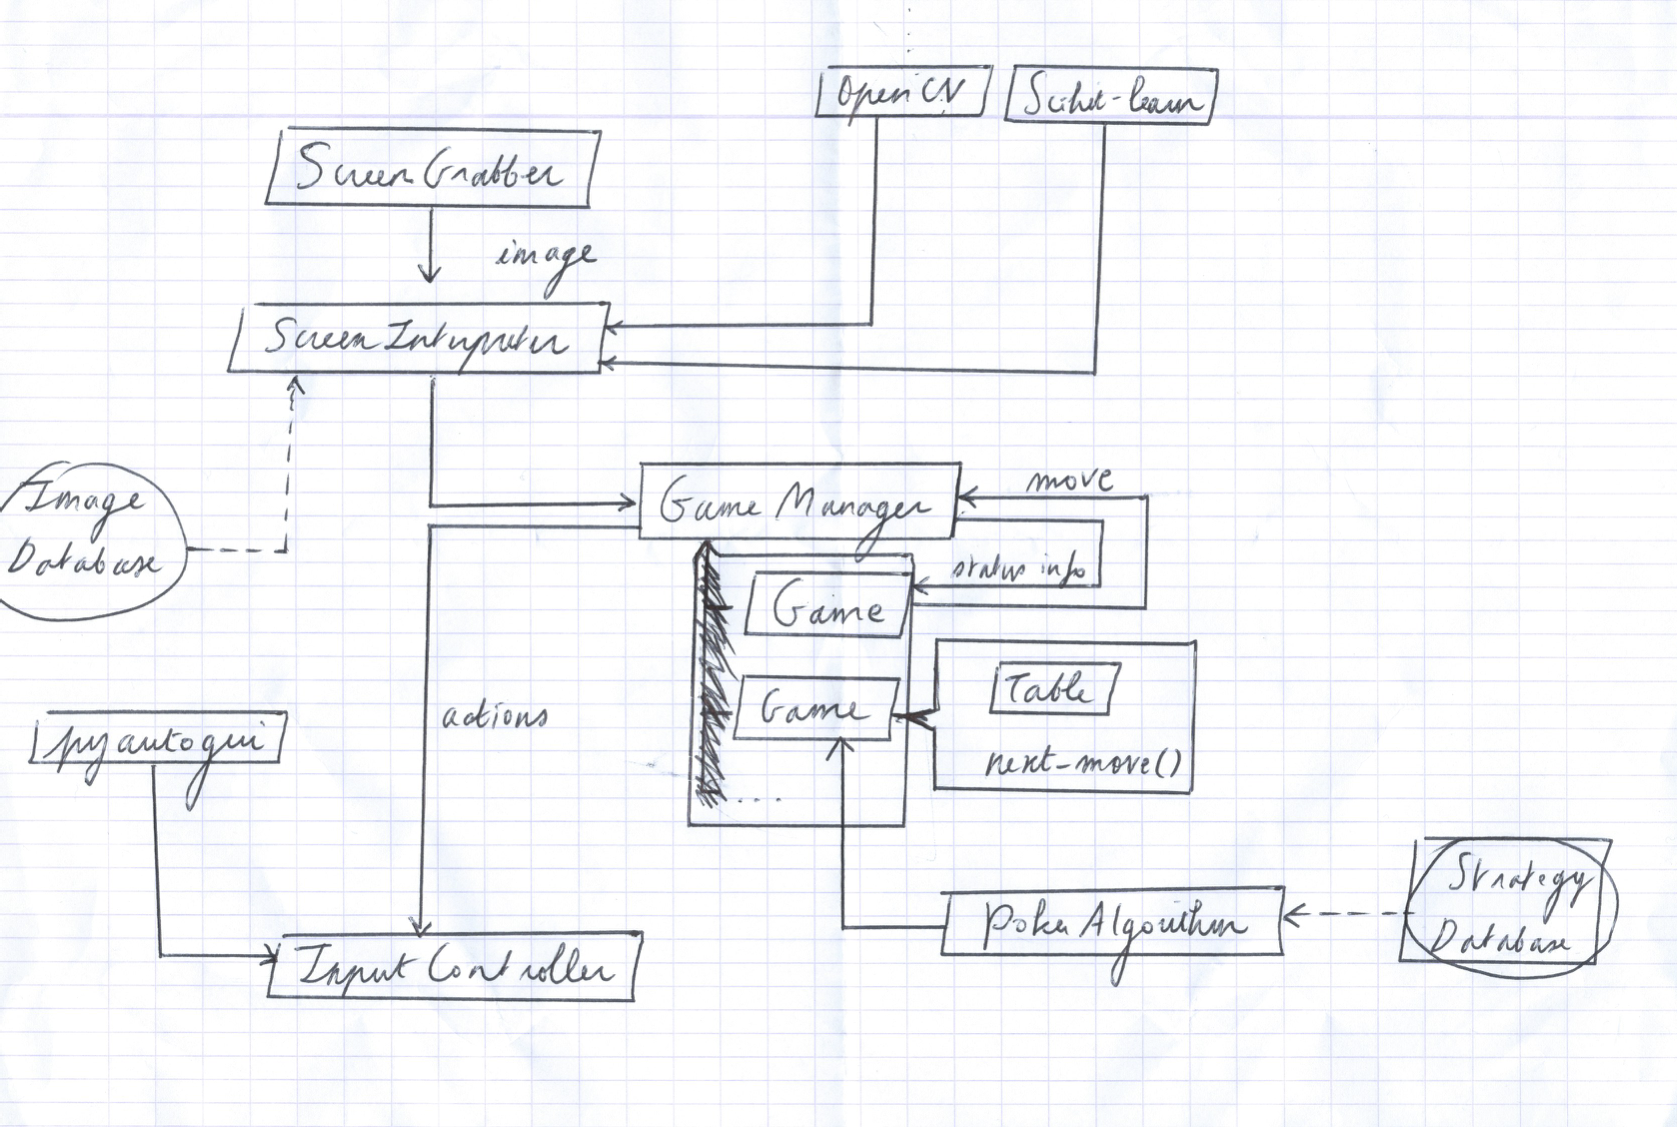 OpenCV
Scikit-learn
Screen Grabber
image
Screen Interpreter
Image
Database
Game Manager
move
status info
Game
Game
Table
next-move()
....
actions
pyautogui
Input Controller
Poker Algorithm
Strategy
Database